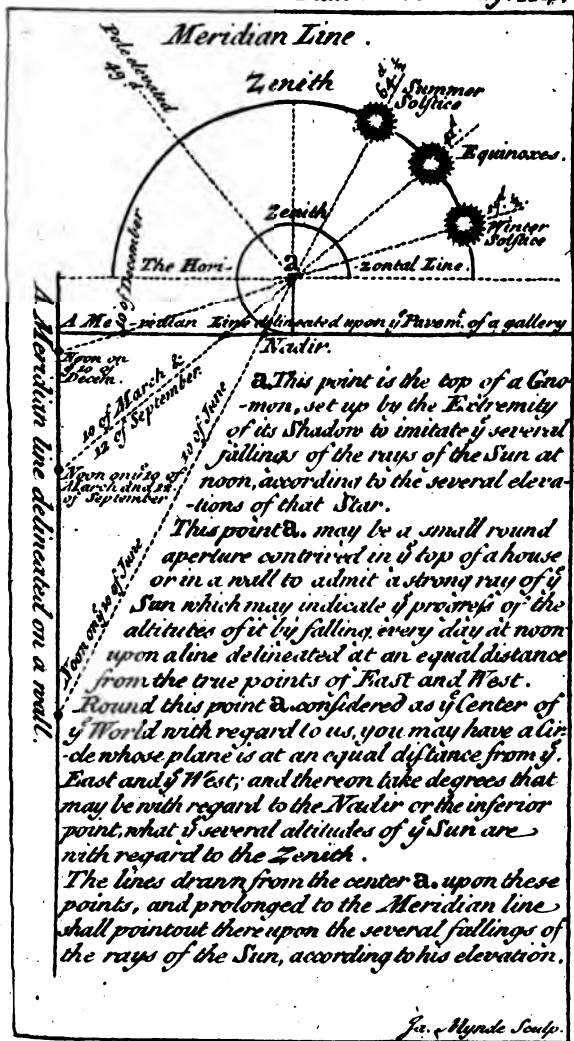 Meridian Line.
Pole elevated
49 d.
Zenith
64 d. ½
Summer
Solstice
Equinoxes.
d. ½
Winter
Solstice
Zenith
a
The Hori-
zontal Line.
10 of December
A Me-ridian Line delineated upon yᵉ Pavemᵗ. of a gallery
Nadir.
Noon on
yᵉ 10 of
Decem.
10 of March &
12 of September.
10 of June
Noon on yᵉ 10 of
March and 12
of September
Noon on yᵉ 10 of June
A Meridian line delineated on a wall.
a. This point is the top of a Gno
-mon, set up by the Extremity
of its Shadow to imitate yᵉ several
fallings of the rays of the Sun at
noon, according to the several eleva-
-tions of that Star.
This point a. may be a small round
aperture contrived in yᵉ top of a house
or in a wall to admit a strong ray of yᵉ
Sun which may indicate yᵉ progreſs of the
altitudes of it by falling every day at noon
upon a line delineated at an equal distance
from the true points of East and West.
Round this point a. considered as yᵉ Center of
yᵉ World with regard to us, you may have a Cir
-cle whose plane is at an equal diſtance from yᵉ.
East and yᵉ West; and thereon take degrees that
may be with regard to the Nadir or the inferior
point, what yᵉ several altitudes of yᵉ Sun are
with regard to the Zenith.
The lines drawn from the center a. upon these
points, and prolonged to the Meridian line
shall point out there upon the several fallings of
the rays of the Sun, according to his elevation.
Ja. Mynde Sculp.